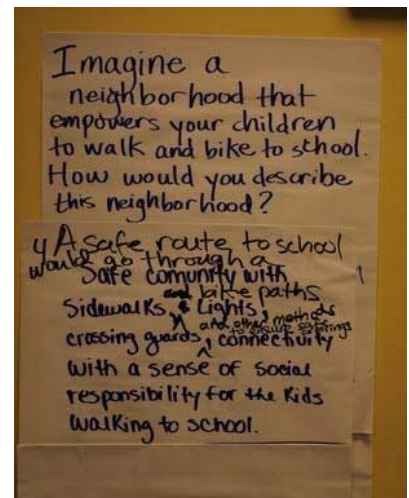 Imagine a
neighborhood that
empowers your children
to walk and bike to school.
How would you describe
this neighborhood?
A safe route to school
would go through a
Safe comunity with
and bike paths
Sidewalks, & Lights,
and other methods
crossing guards, connectivity
with a sense of social
responsibility for the kids
walking to school.